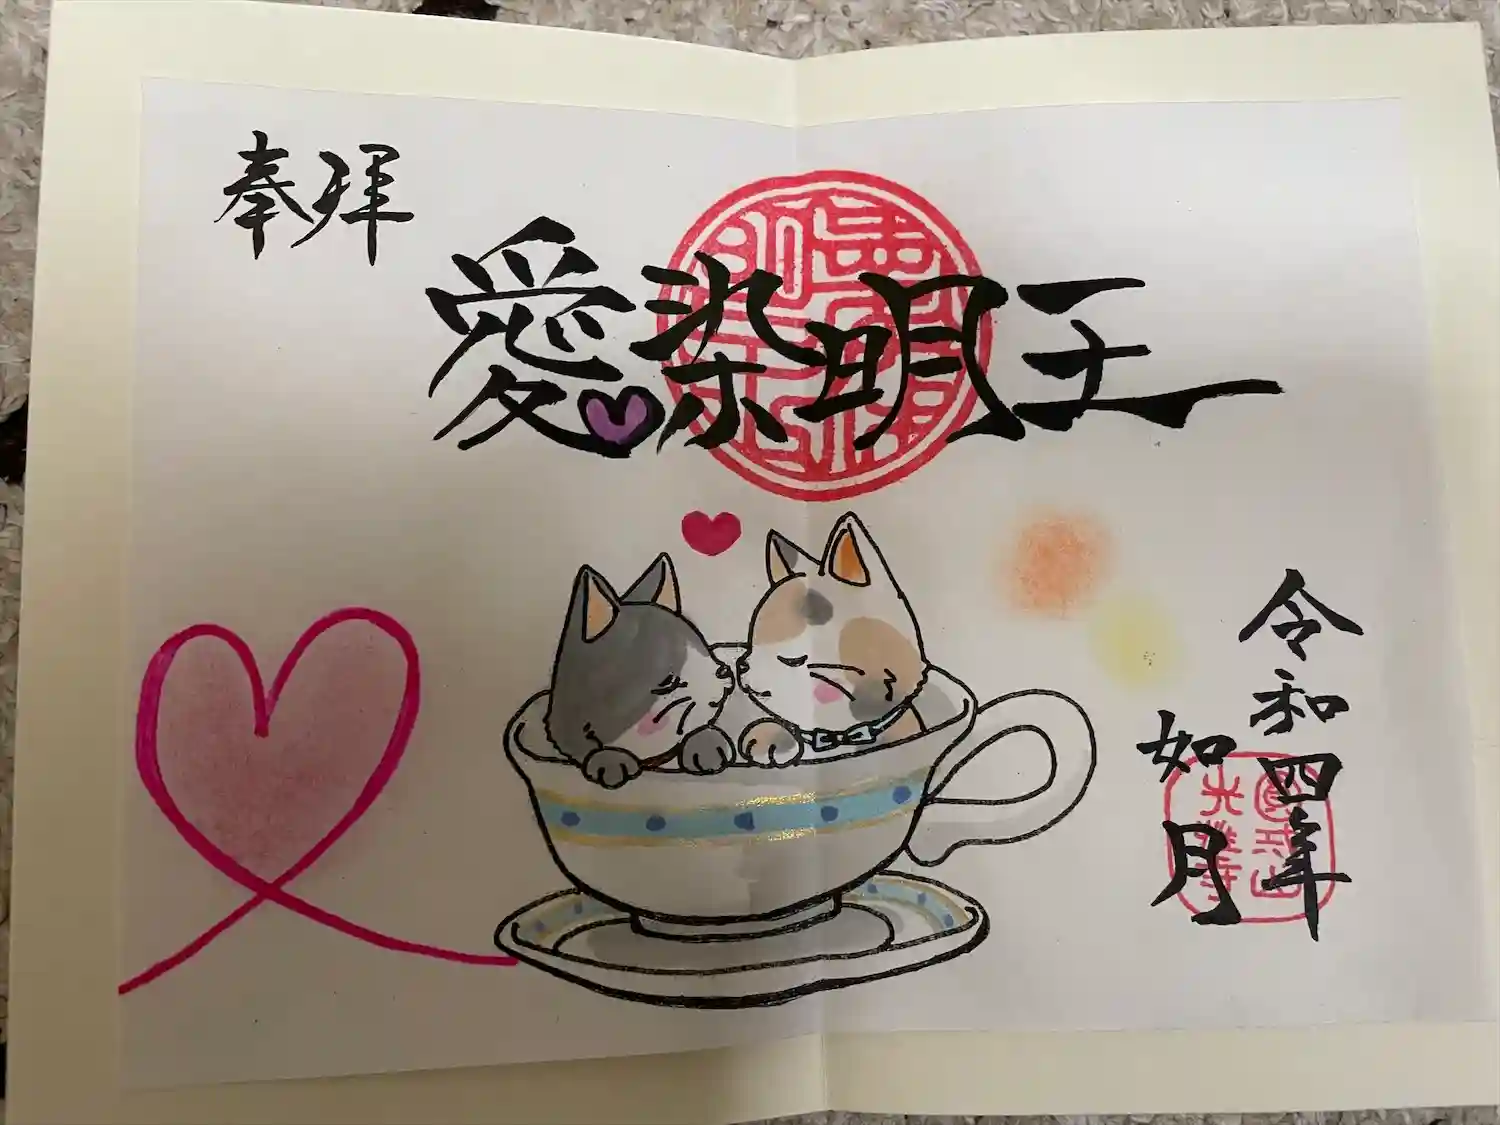 奉拝
愛染明王
令和四年
如月